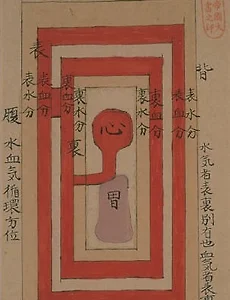 背
水気者表裏別有也血気者表
表水分
表血分
裏血分
裏水分
心
胃
裏水分
裏血分
裏
表血分
表水分
表
腹
水血気循環方位